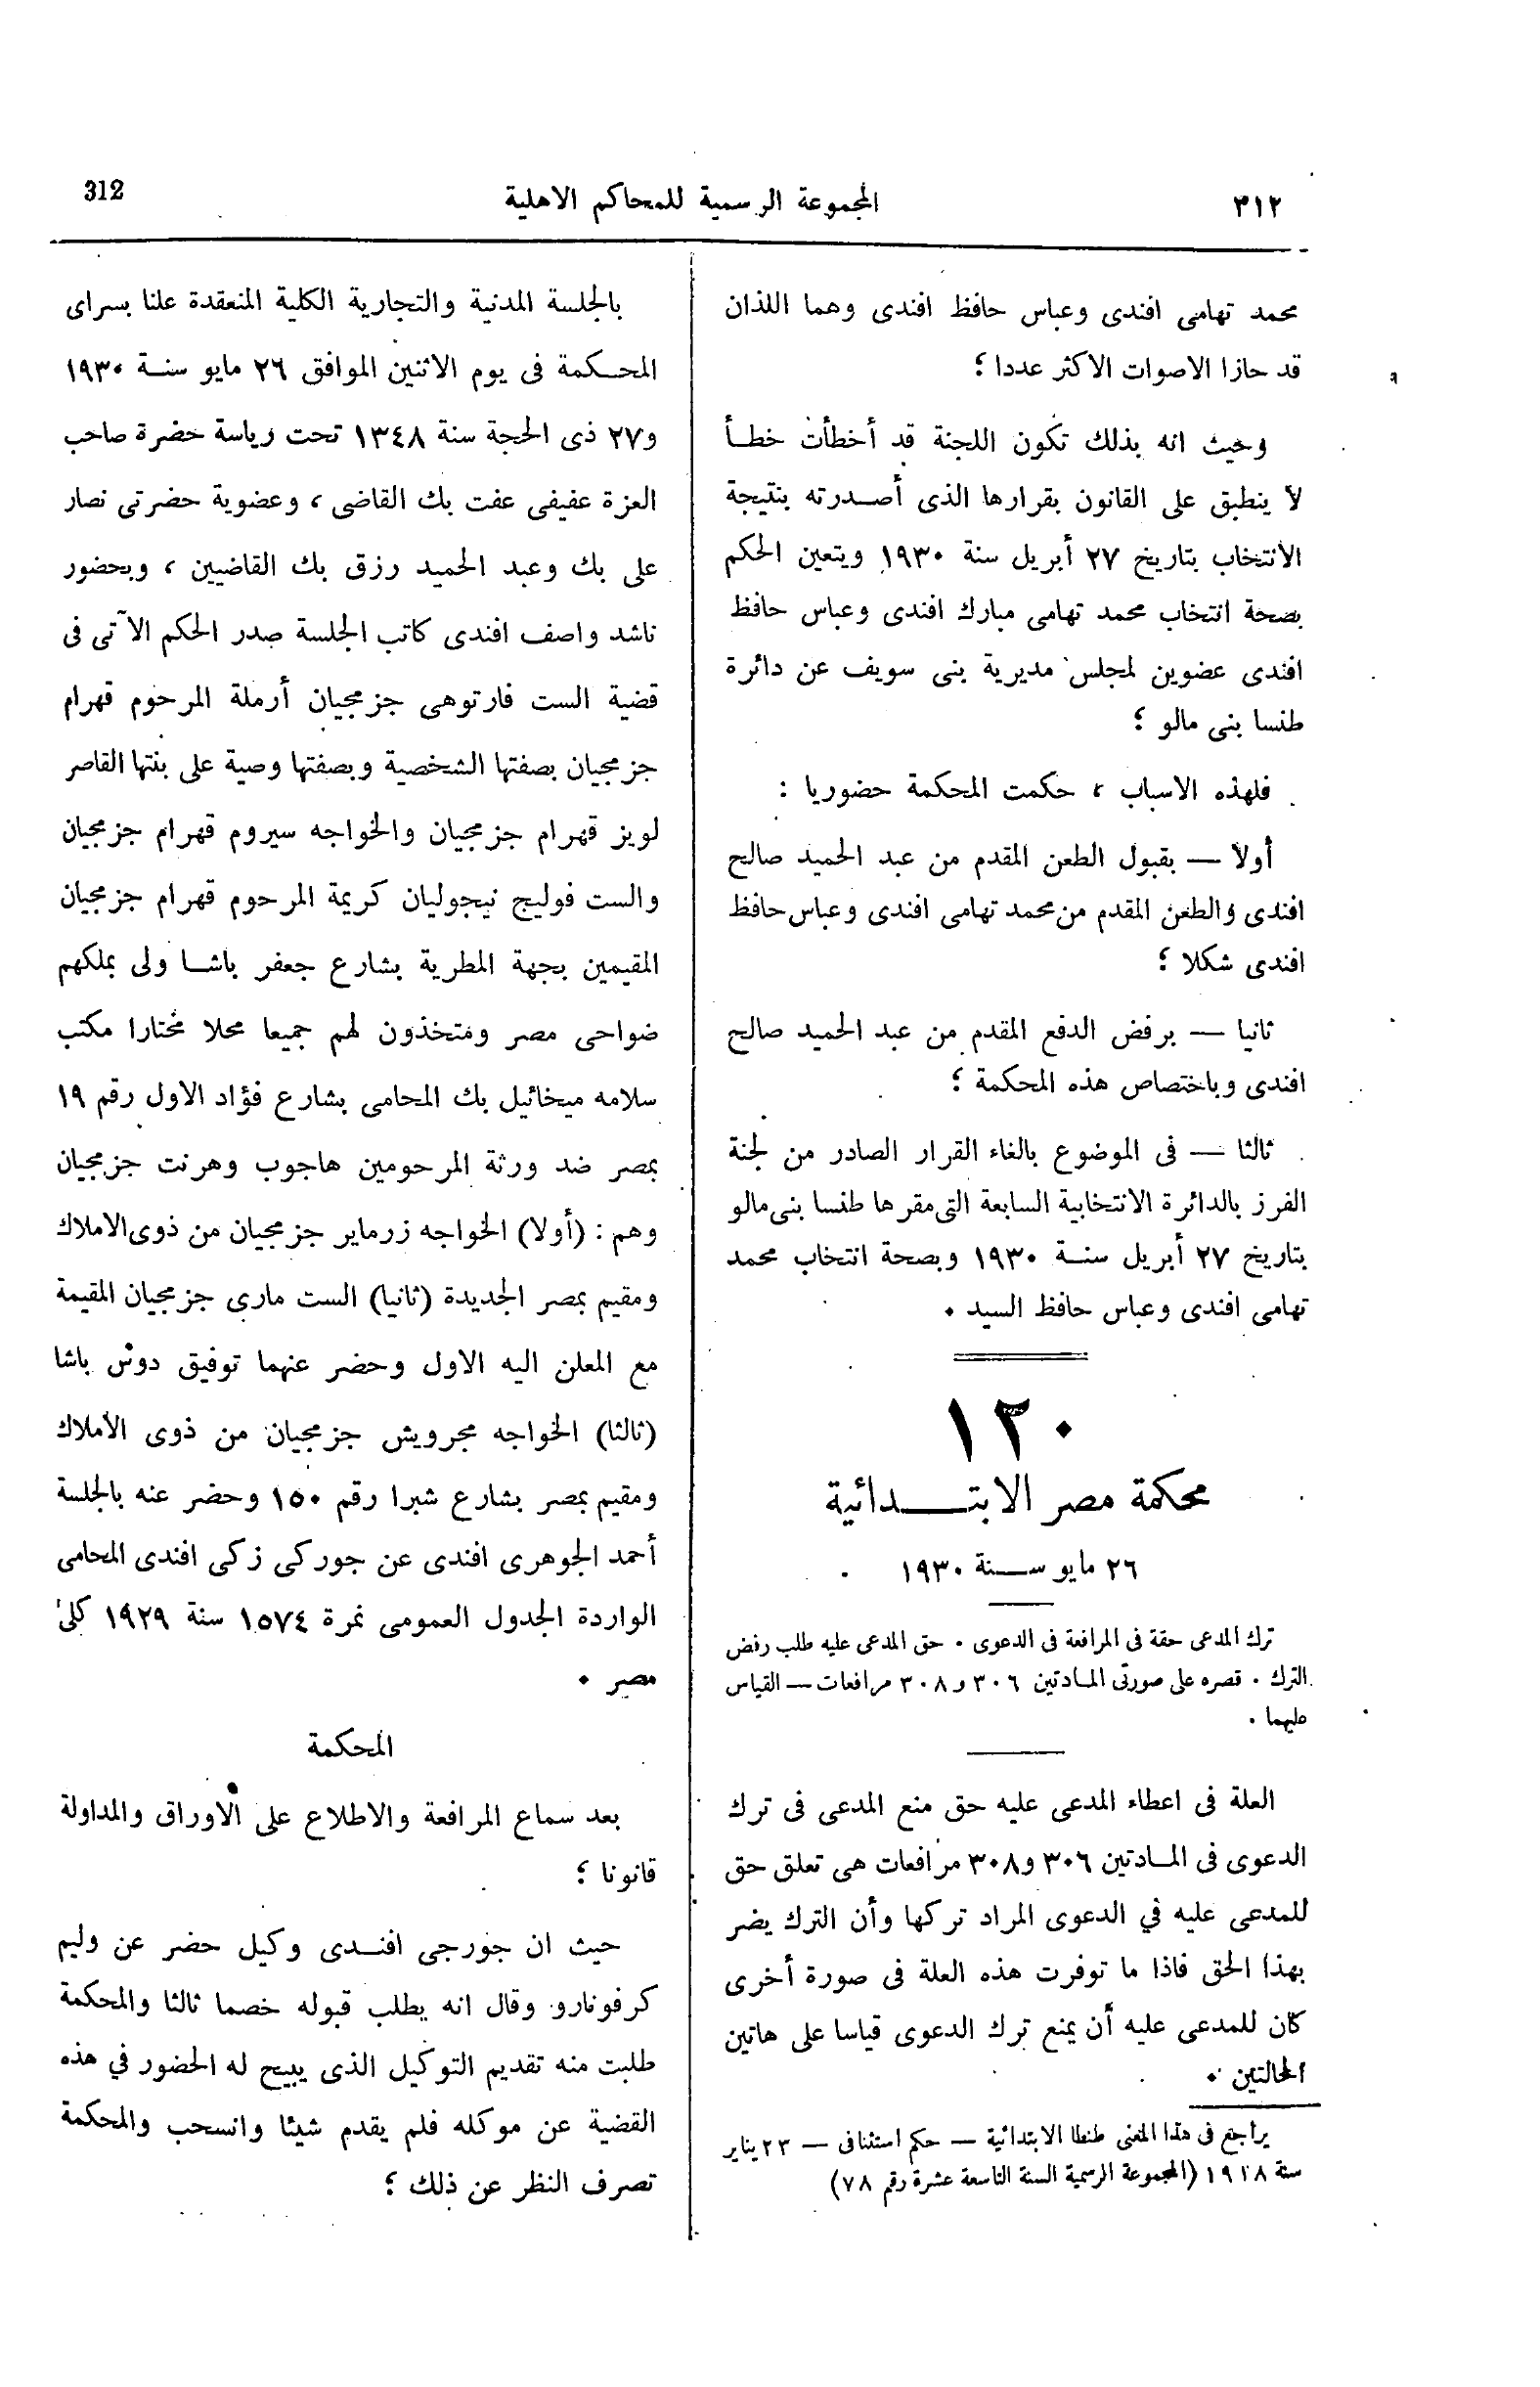 ٣١٢
المجموعة الرسمية للمحاكم الاهلية
312
محمد تهامى افندى وعباس حافظ افندى وهما اللذان
قد حازا الاصوات الاكثر عددا ؛
وحيث انه بذلك تكون اللجنة قد أخطأت خطأ
لا ينطبق على القانون بقرارها الذى أصدرته بنتيجة
الانتخاب بتاريخ ٢٧ أبريل سنة ١٩٣٠ ويتعين الحكم
بصحة انتخاب محمد تهامى مبارك افندى وعباس حافظ
افندى عضوين لمجلس مديرية بنى سويف عن دائرة
طنسا بنى مالو ؛
فلهذه الاسباب ، حكمت المحكمة حضوريا :
أولا — بقبول الطعن المقدم من عبد الحميد صالح
افندى والطعن المقدم من محمد تهامى افندى وعباس حافظ
افندى شكلا ؛
ثانيا — برفض الدفع المقدم من عبد الحميد صالح
افندى وباختصاص هذه المحكمة ؛
ثالثا — فى الموضوع بالغاء القرار الصادر من لجنة
الفرز بالدائرة الانتخابية السابعة التى مقرها طنسا بنى مالو
بتاريخ ٢٧ أبريل سنة ١٩٣٠ وبصحة انتخاب محمد
تهامى افندى وعباس حافظ السيد ٠
١٢٠
محكمة مصر الابتدائية
٢٦ مايو سنة ١٩٣٠
ترك المدعى حقة فى المرافعة فى الدعوى ٠ حق المدعى عليه طلب رفض
الترك ٠ قصره على صورتى المادتين ٣٠٦ و ٣٠٨ مرافعات — القياس
عليهما ٠
العلة فى اعطاء المدعى عليه حق منع المدعى فى ترك
الدعوى فى المادتين ٣٠٦ و٣٠٨ مرافعات هى تعلق حق
للمدعى عليه في الدعوى المراد تركها وأن الترك يضر
بهذا الحق فاذا ما توفرت هذه العلة فى صورة أخرى
كان للمدعى عليه أن يمنع ترك الدعوى قياسا على هاتين
الحالتين ٠
يراجع فى هذا المعنى طنطا الابتدائية — حكم استئنافى — ٢٣ يناير
سنة ١٩١٨ (المجموعة الرسمية السنة التاسعة عشرة رقم ٧٨)
بالجلسة المدنية والتجارية الكلية المنعقدة علنا بسراى
المحكمة فى يوم الاثنين الموافق ٢٦ مايو سنة ١٩٣٠
و٢٧ ذى الحجة سنة ١٣٤٨ تحت رياسة حضرة صاحب
العزة عفيفى عفت بك القاضى ، وعضوية حضرتى نصار
على بك وعبد الحميد رزق بك القاضيين ، وبحضور
ناشد واصف افندى كاتب الجلسة صدر الحكم الآتى فى
قضية الست فارتوهى جزمجيان أرملة المرحوم قهرام
جزمجيان بصفتها الشخصية وبصفتها وصية على بنتها القاصر
لويز قهرام جزمجيان والخواجه سيروم قهرام جزمجيان
والست فوليج نيجوليان كريمة المرحوم قهرام جزمجيان
المقيمين بجهة المطرية بشارع جعفر باشا ولى بملكهم
ضواحى مصر ومتخذون لهم جميعا محلا مختارا مكتب
سلامه ميخائيل بك المحامى بشارع فؤاد الاول رقم ١٩
بمصر ضد ورثة المرحومين هاجوب وهرنت جزمجيان
وهم : (أولا) الخواجه زرماير جزمجيان من ذوى الاملاك
ومقيم بمصر الجديدة (ثانيا) الست مارى جزمجيان المقيمة
مع المعلن اليه الاول وحضر عنهما توفيق دوس باشا
(ثالثا) الخواجه مجرويش جزمجيان من ذوى الأملاك
ومقيم بمصر بشارع شبرا رقم ١٥٠ وحضر عنه بالجلسة
أحمد الجوهرى افندى عن جوركى زكى افندى المحامى
الواردة الجدول العمومى نمرة ١٥٧٤ سنة ١٩٢٩ كلى
مصر ٠
المحكمة
بعد سماع المرافعة والاطلاع على الاوراق والمداولة
قانونا ؛
حيث ان جورجى افندى وكيل حضر عن وليم
كرفونارو وقال انه يطلب قبوله خصما ثالثا والمحكمة
طلبت منه تقديم التوكيل الذى يبيح له الحضور في هذه
القضية عن موكله فلم يقدم شيئا وانسحب والمحكمة
تصرف النظر عن ذلك ؛